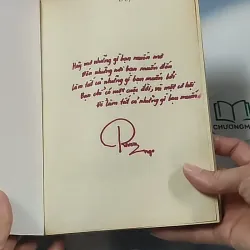 Hãy mơ những gì bạn muốn mơ
Đến những nơi bạn muốn đến
Làm tất cả những gì bạn muốn bởi
Bạn chỉ có một cuộc đời, và một cơ hội
Để làm tất cả những gì bạn muốn
CHUONGM